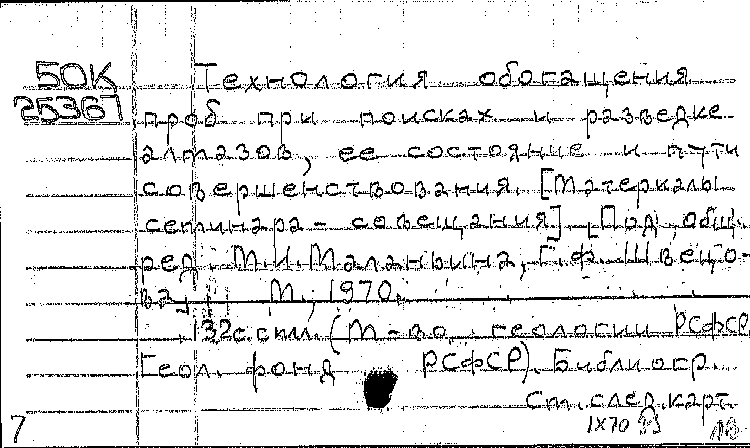 50К Технология обогащения
25367 проб при поисках и разведке
алмазов, ее состояние и пути
совершенствования. [Материалы
семинара - совещания] [Под общ.
ред. М.И.Маланьина, Г.Ф. Швецо-
ва] М., 1970.
132с. с илл. (М-во геологии РСФСР
Геол. фонд РСФСР). Библиогр.
См. след. карт.
7 1X70